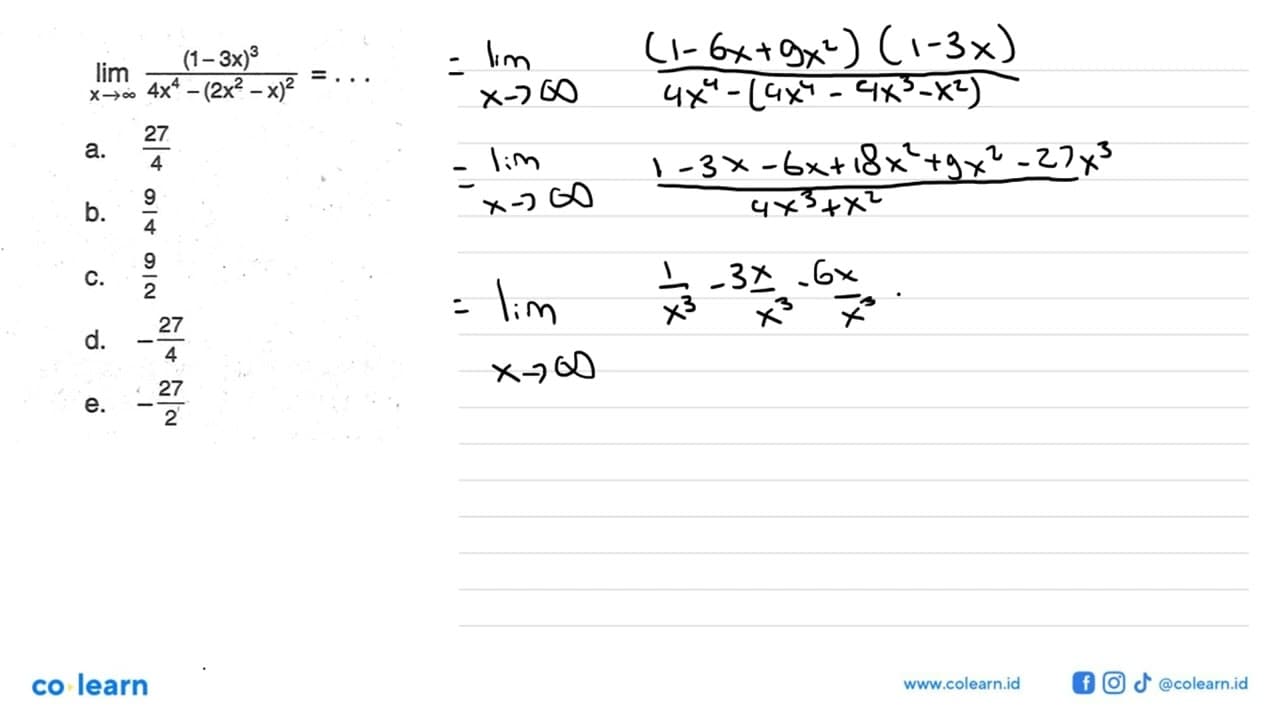 lim x→∞ (1 – 3x)³ / 4x⁴ – (2x² – x)² = . . .
a. 27/4
b. 9/4
c. 9/2
d. –27/4
e. –27/2
= lim x→∞ (1 - 6x + 9x²) (1 - 3x) / 4x⁴ - (4x⁴ - 4x³ - x²)
= lim x→∞ 1 - 3x - 6x + 18x² + 9x² - 27x³ / 4x³ + x²
= lim x→∞ 1/x³ - 3x/x³ - 6x/x³ .
co learn
www.colearn.id
@colearn.id